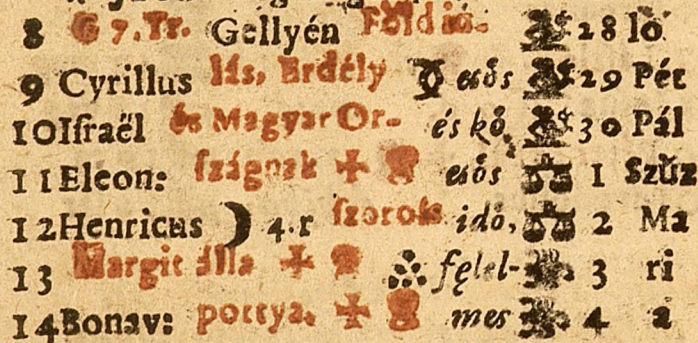 8 G 7. Tr. Gellyén Föld in- 28 lo
9 Cyrillus lás, Erdély esös 29 Pét
10 Israël és Magyar Or- és kö, 30 Pál
11 Eleon: szágnak esös 1 Szűz
12 Henricus 4. r szorofs idö, 2 Ma
13 Margit álla fęlel- 3 ri
14 Bonav: pottya. mes 4 a